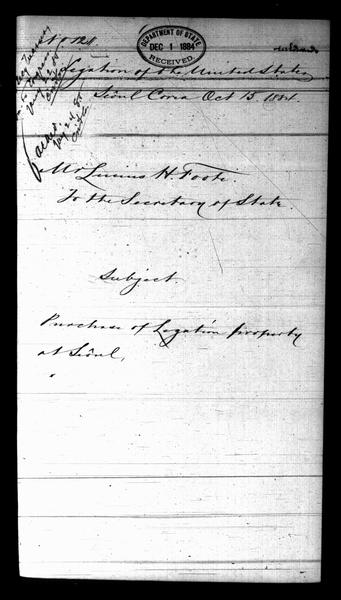 No 124
DEPARTMENT OF STATE
DEC 1 1884
RECEIVED.
Legation of the United States
Séoul Corea Oct 13. 1884.
Mr Lucius H. Foote.
To the Secretary of State.
Subject.
Purchase of Legation property
at Séoul,